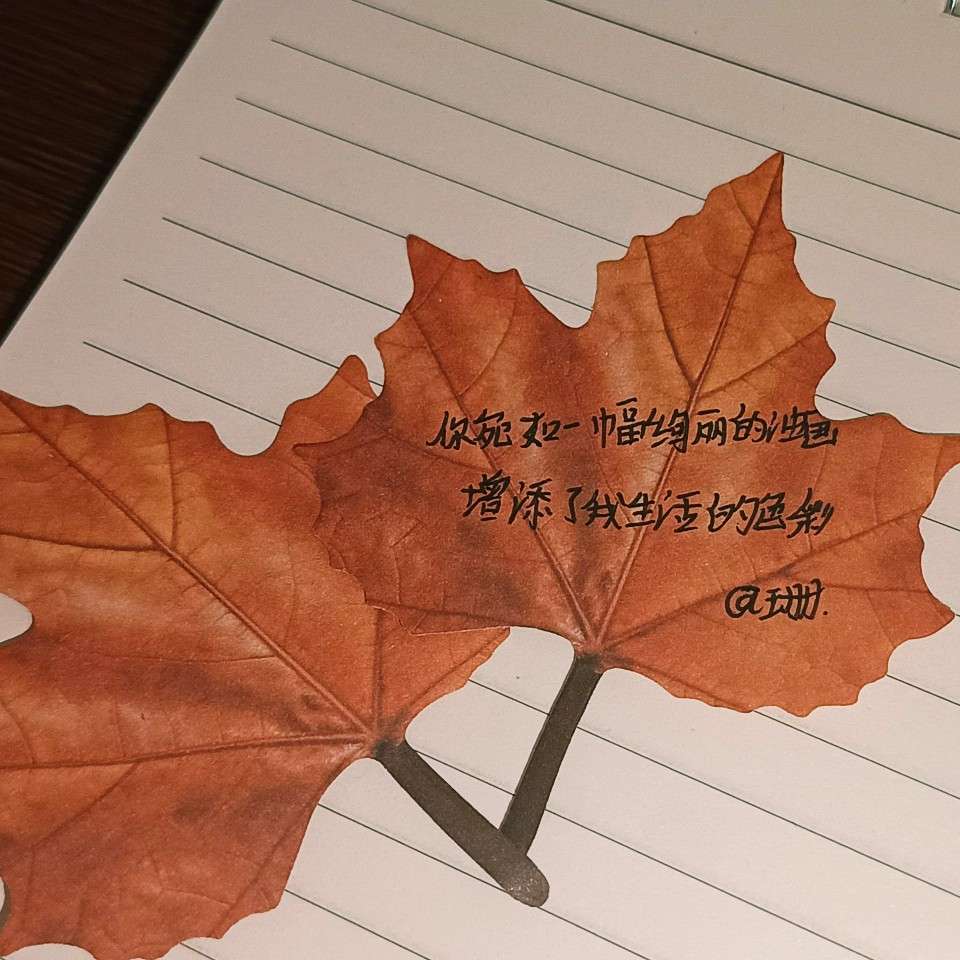 你宛如一幅绚丽的油画
增添了我生活的色彩
@珊.